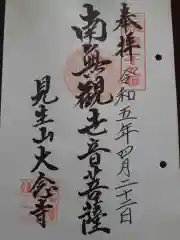 奉拝 令和五年四月二十三日
南無観世音菩薩
見生山大念寺